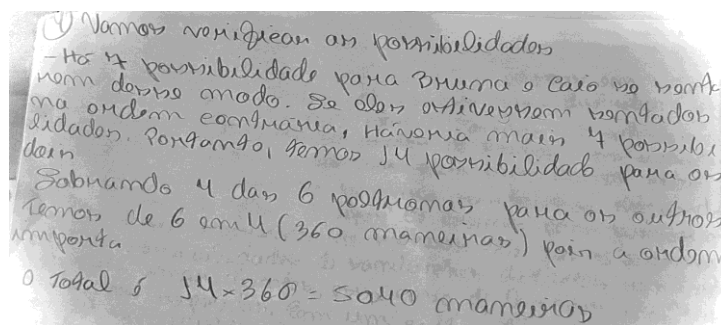 1) Vamos verificar as possibilidades
- Há 7 possibilidade para Bruna e Caio se senta
rem desse modo. Se eles estivessem sentados
na ordem contrária, Haveria mais 7 possibi
lidades. Portanto, temos 14 possibilidade para os
dois
Sobrando 4 das 6 poltronas para os outros
Temos de 6 em 4 (360 maneiras) pois a ordem
importa
O Total é 14 x 360 = 5040 maneiras